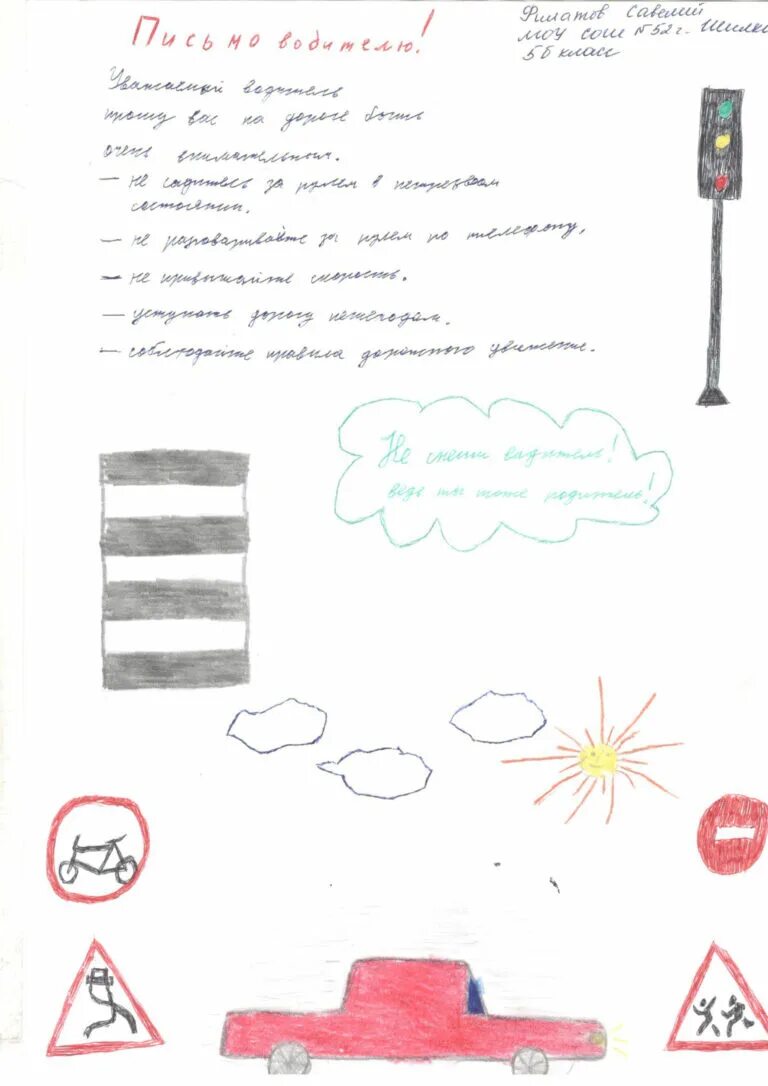 Письмо водителю!
Филатов Савелий
МОУ СОШ №52 г. Шилка
5б класс
Уважаемый водитель
прошу вас на дороге быть
очень внимательным.
– не садитесь за рулем в нетрезвом
состоянии.
– не разговаривайте за рулем по телефону,
– не привышайте скорость.
– уступать дорогу пешеходам.
– соблюдайте правила дорожного движение.
Не спеши водитель!
ведь ты тоже родитель!